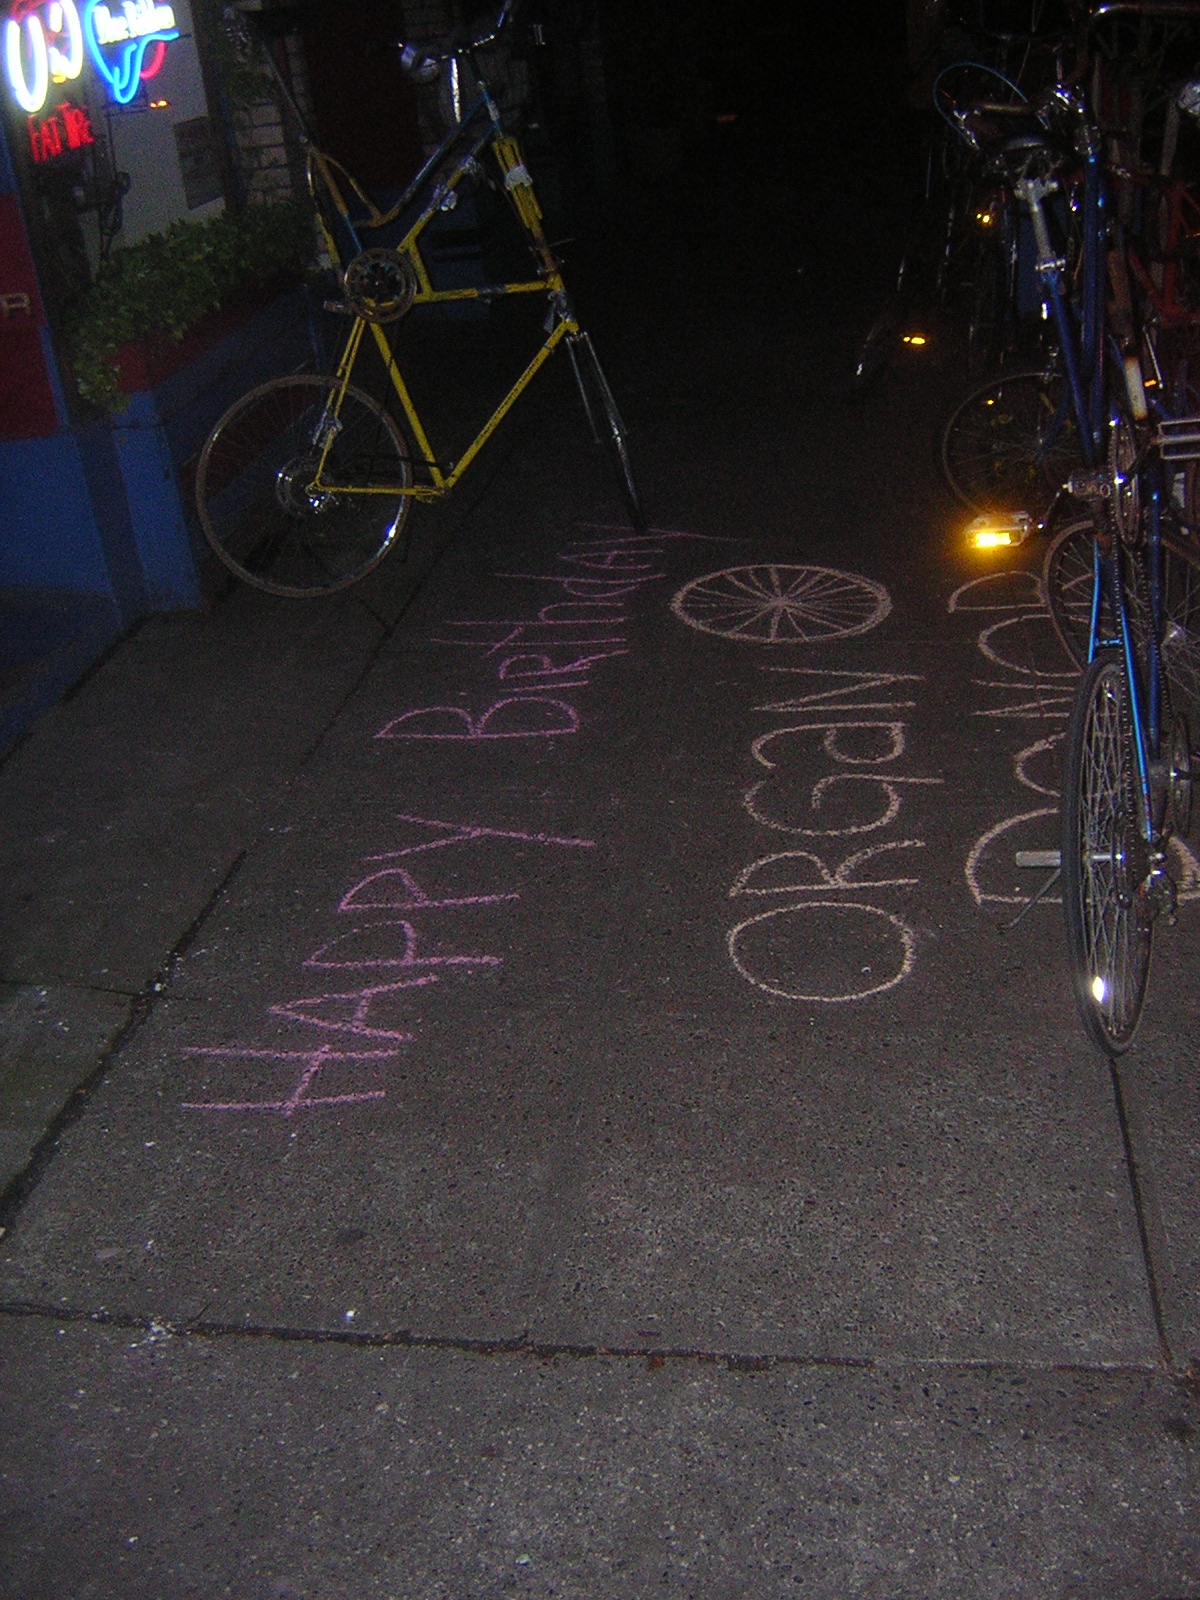 Blue Ribbon
FAT TIRE
R
HAPPY BIRThdAY
ORGaN
DONOR